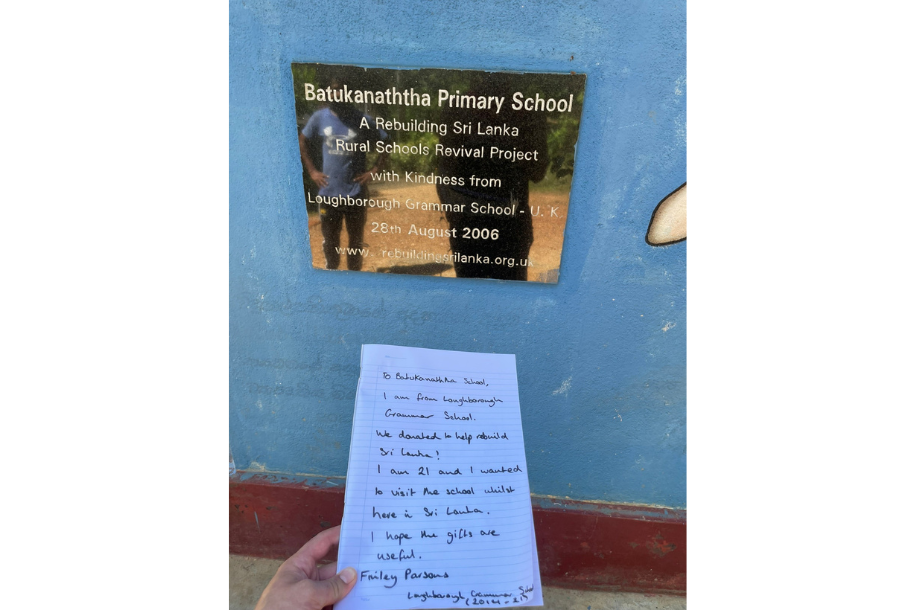 Batukanaththa Primary School
A Rebuilding Sri Lanka
Rural Schools Revival Project
with Kindness from
Loughborough Grammar School - U. K
28th August 2006
www. rebuildingsrilanka.org.uk
To Batukanaththa School,
I am from Loughborough
Grammar School.
We donated to help rebuild
Sri Lanka!
I am 21 and I wanted
to visit the school whilst
here in Sri Lanka.
I hope the gifts are
useful.
Finley Parsons
Loughborough Grammar School
(2014 - 21)